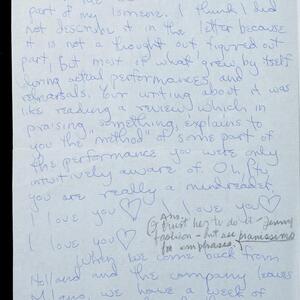 part of my (someone. I think I did
not describe it in the letter because
it is not a thought out, figured out
part, but most of what grew by itself
during actual performances and
rehearsals. Your writing about it was
like reading a review which in
praising something, explains to
you the "method" of some part of
the performance you were only
intuitively aware of. Oh,
you are really a mindreader.
I love you ♡ I love you ♡
Ans.
trust her to do it - Jenny
I love you ♡
fashion - but use pianissimo
for emphases.
When we come back from
Holland and the company leaves
we have a week of